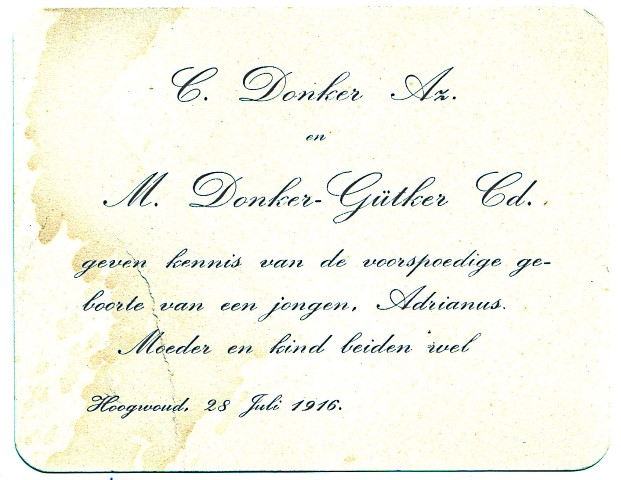 C. Donker Az.
en
M. Donker-Gütker Cd.
geven kennis van de voorspoedige ge-
boorte van een jongen, Adrianus.
Moeder en kind beiden wel
Hoogwoud, 28 Juli 1916.